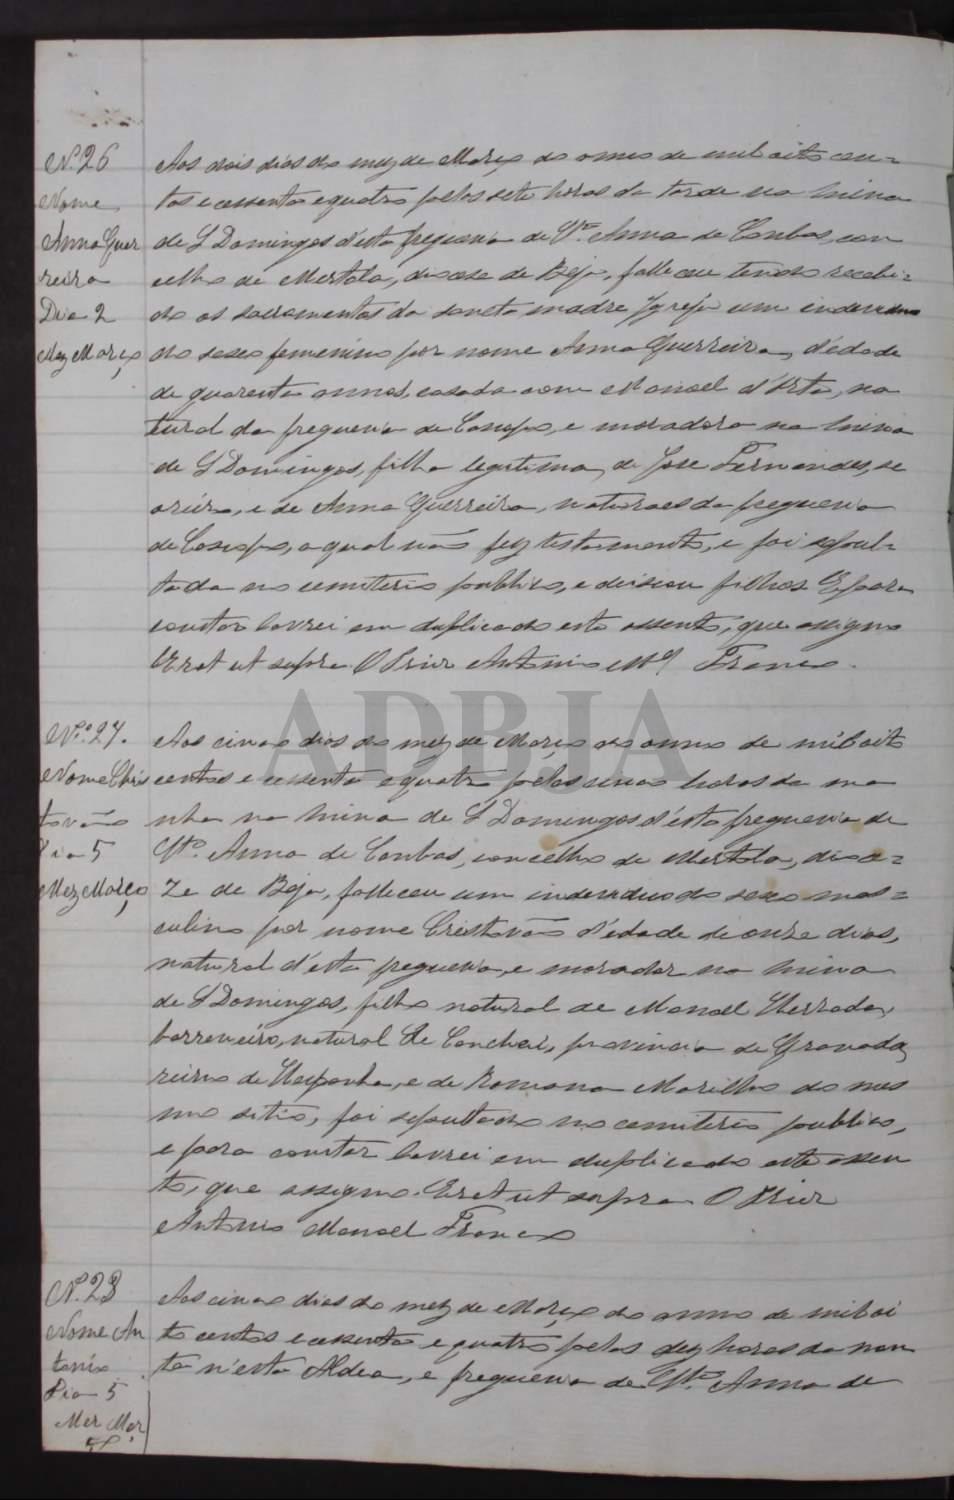 N.º 26
Nome
Anna Guer
reiro
Dia 2
Mez Março
Aos dois dias do mez de Março do anno de mil oito cen=
tos e cessenta e quatro pelas sete horas da tarde na Mina
de S Domingos d'esta freguezia de St.ª Anna de Cambas, con
celho de Mertola, diocese de Beja, falleceu tendo recebi=
do os sacramentos da sancta madre Igreja um individuo
do sexo femenino por nome Anna Guerreiro, d'idade
de quarenta annos, casada com Manoel d'Orta, na
tural da freguezia de, e moradora na Mina
de S Domingos, filha legitima de Jose Fernandes, se
areiro, e de Anna Guerreiro, naturaes da freguezia
de, a qual não fez testamento, e foi sepul=
tada no cemiterio publico, e deixou filhos. E para
constar lavrei em duplicado este assento, que assigno
Erat ut supra O Prior Antonio M.el Franco.
ADBJA
N.º 27.
Nome Chris
tovão
Dia 5
Mez Março
Aos cinco dias do mez de Março do anno de mil oito
centos e cessenta e quatro pelas cinco horas da ma
nha na Mina de S Domingos d'esta freguezia de
St.ª Anna de Cambas, concelho de Mertola, dioce=
ze de Beja, falleceu um individuo do sexo mas=
culino por nome Cristovão d'edade de onze dias,
natural d'esta freguezia, e morador na Mina
de S Domingos, filho natural de Manoel Herrada,
barreneiro, natural de Conchar, provincia de Granada,
reino de Hespanha, e de Romana Morilhas do mes
mo sitio, foi sepultado no cemiterio publico,
e para constar lavrei em duplicado este assen
to, que assigno. Erat ut supra O Prior
Antonio Manoel Franco
N.º 28
Nome An
tonio
Dia 5
Mez Mar
ço
Aos cinco dias do mez de Março do anno de mil oi
to centos e cessenta e quatro pelas dez horas da noi
te n'esta Aldea, e freguezia de St.ª Anna de